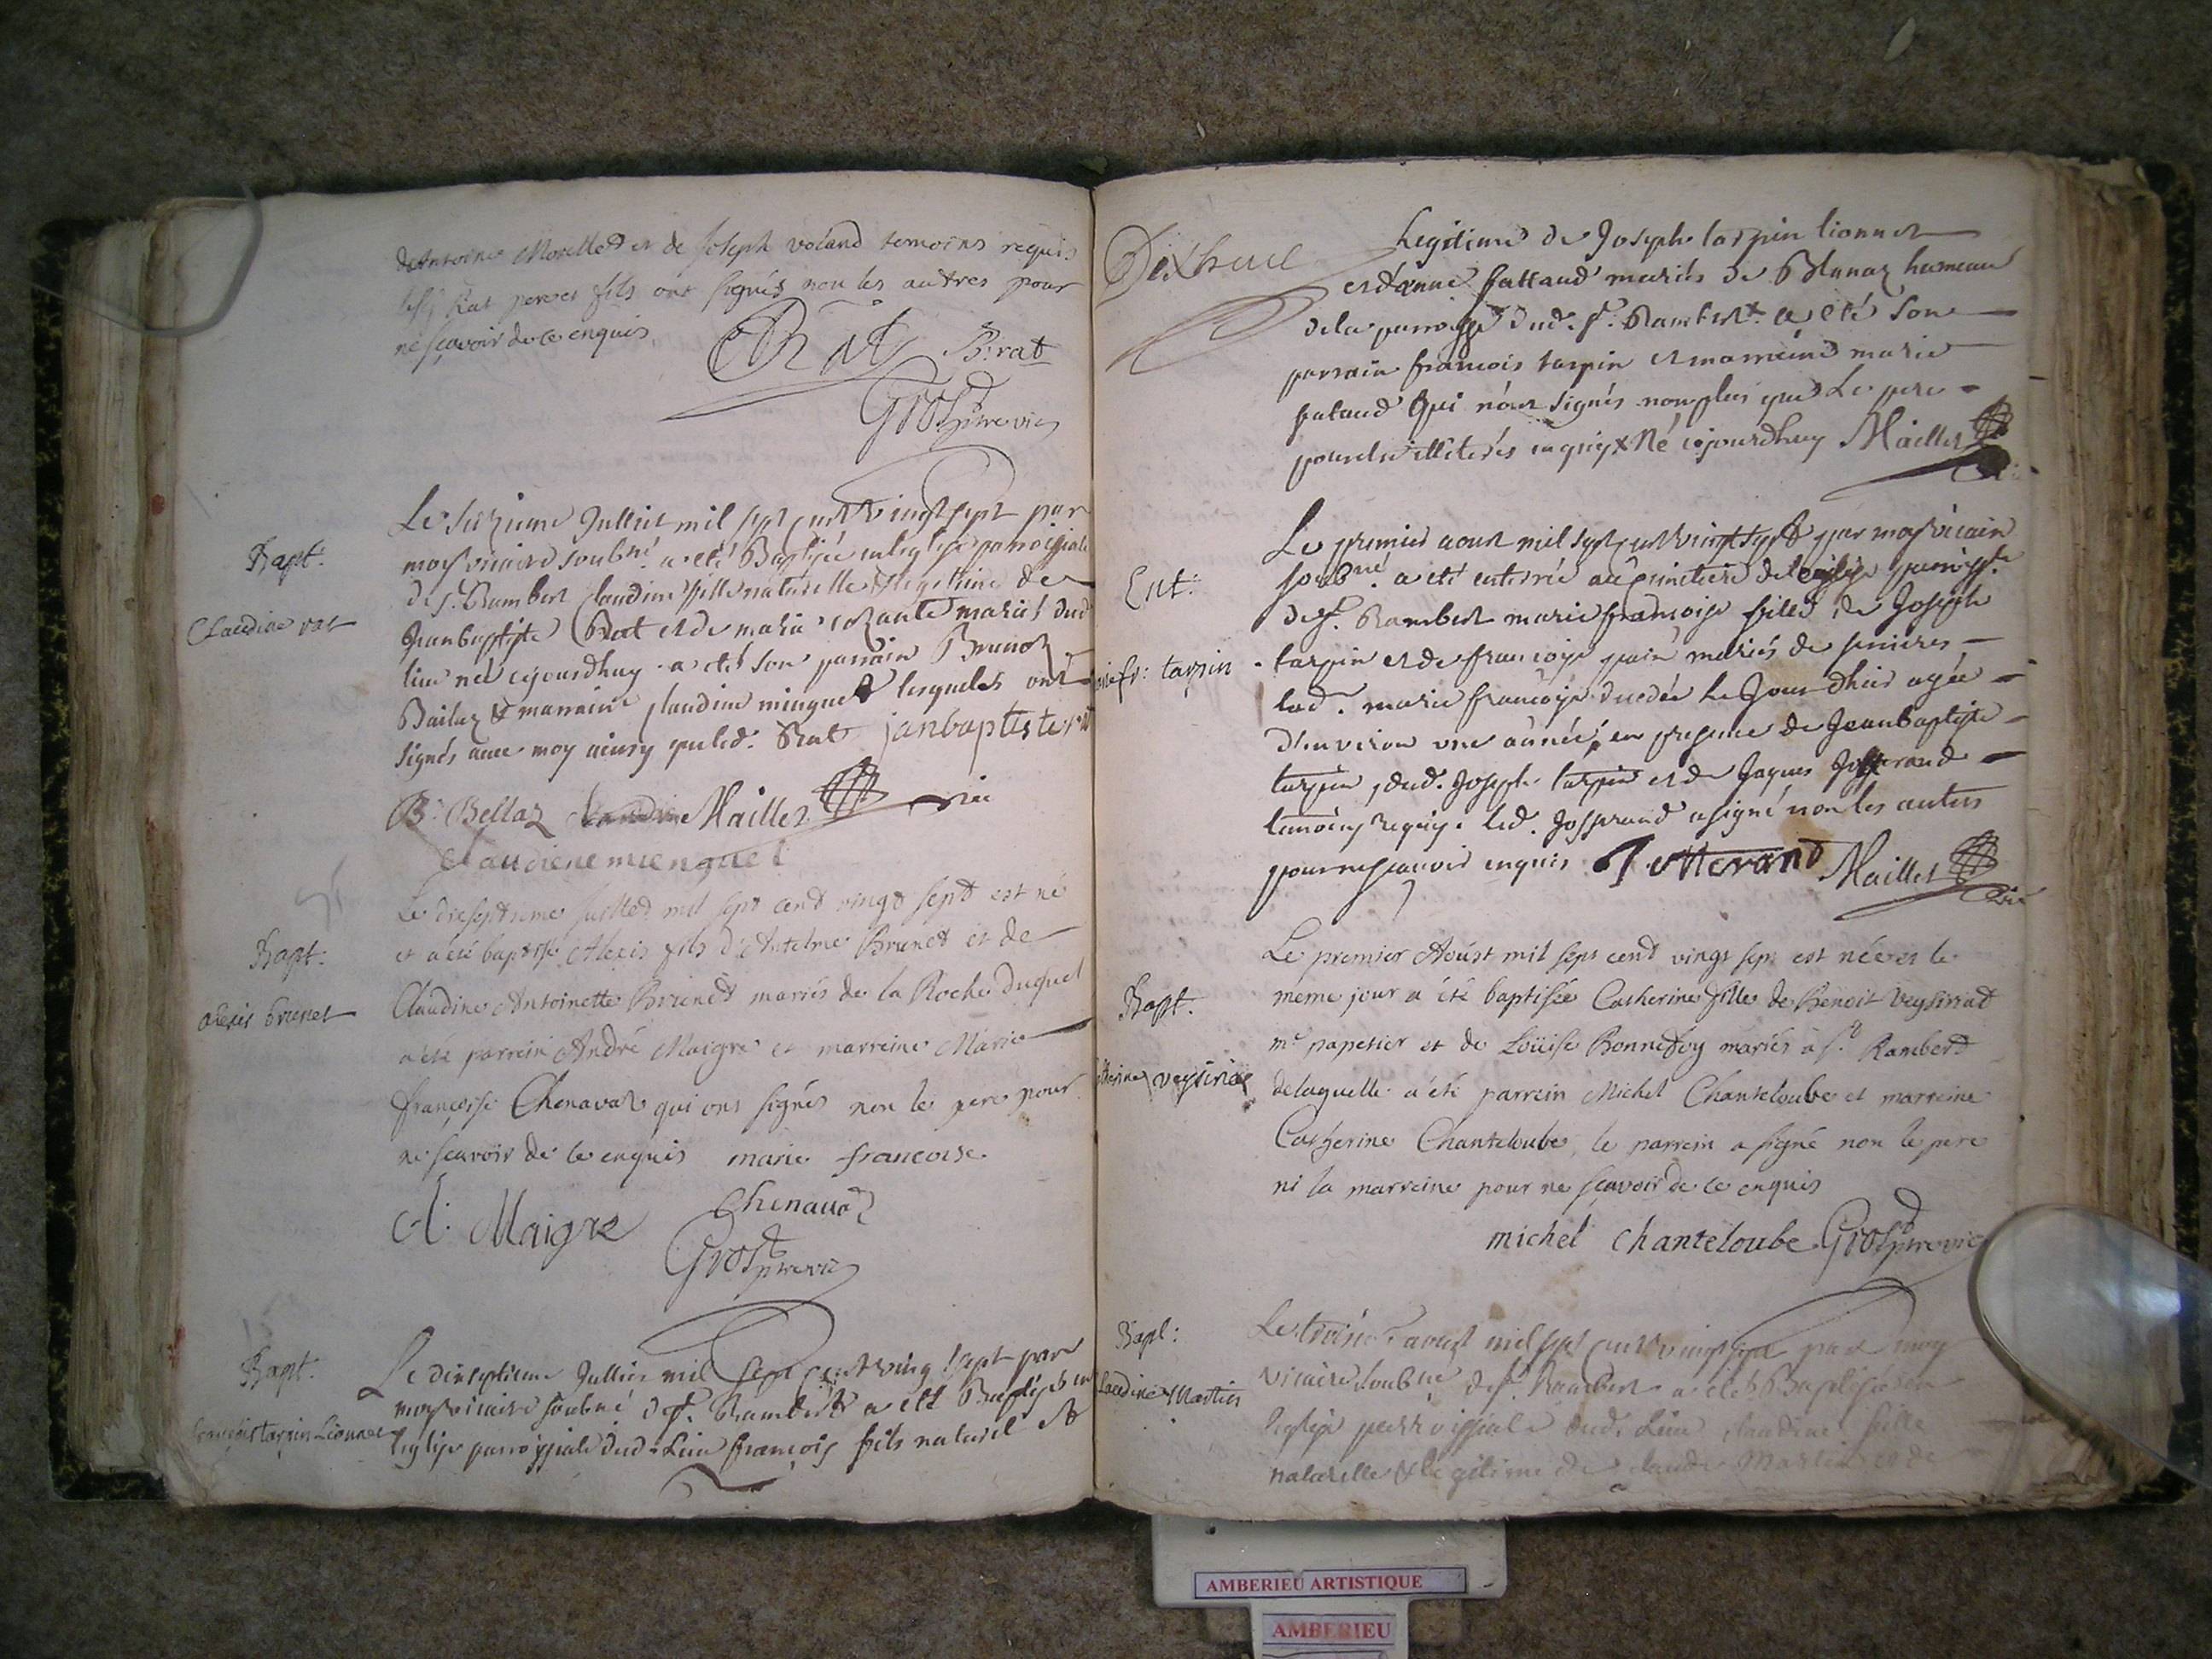 d'Antoine Morellet et de Joseph voland temoins requis
lesq. Rat pere et fils ont signés non les autres pour
ne sçavoir de ce enquis.
Rat B. rat
Gros ptre vic
Bapt.
Claudine rat
Le seizieme Julliet mil sept cent vingt sept par
moy vicaire soubné. a eté Baptisée en leglise parroissiale
de s. Rambert Claudine fille naturelle & legitime de
Jeanbaptiste Rat et de maria mariés dud
lieu née cejourdhuy. a eté son parrain Benoit
Bailaz & marraine claudine minguet lesquels ont
signés avec moy ainsy que led. Rat janbaptiste rat
B. Bellaz Maillet vic
claudiene mienguet
Bapt.
alexis brunet
Le dieseptieme Juillet mil sept cent vingt sept est né
et a été baptisé Alexis fils d'Antelme Brunet et de
Claudine Antoinette Brunet mariés de la Roche duquel
a été parrein André Maigre et marreine Marie
françoise Chenavaz qui ont signés non le pere pour
ne scavoir de ce enquis marie francoise
A. Maigre Chenavaz
Gros ptre vic
Bapt.
françois tarpin Lionnet
Le dixseptieme Julliet mil sept cent vingt sept par
moy vicaire soubné de s. Rambert a eté Baptisé en
leglise parroissiale dud. Lieu françois fils naturel &
Dixhuit
Legitime de Joseph tarpin lionnet
et d'anne fattaud mariés de Blanaz hameau
de la parroisse dud. s. Rambert. a eté son
parrain francois tarpin et marraine marie
fataud qui n'ont signés non plus que Le pere
pour etre illiterés enquis & Né cejourdhuy Maillet
vic
Ent.
marie fr: tarpin
Le premier aoust mil sept cent vingt sept par moy vicaire
soubné. a eté enterrée au cimetiere de leglise parroiss.
de s. Rambert marie francoise fille de Joseph
tarpin et de francoise mariés de
lad. marie francoise decedée Le Jourdhui agée
d'environ une année, en presence de Jeanbaptiste
tarpin, dud. Joseph tarpin et de Jaques Josserand
temoins requis. led. Josserand a signé non les autres
pour ne scavoir enquis. J. osserand Maillet
vic
Bapt.
Catherine veysiriat
Le premier Aoust mil sept cent vingt sept est née et le
meme jour a été baptisée Catherine fille de Benoit Veysiriat
me papetier et de Loüise Bonnefoy mariés à st. Rambert
de laquelle a été parrein Michel Chanteloube et marreine
Catherine Chanteloube, le parrein a signé non le pere
ni la marreine pour ne scavoir de ce enquis
michel chanteloube Gros ptre vic
Bapt:
Claudine Martin
Le troisie. aoust mil sept cent vingt sept par moy
vicaire soubné de s. Rambert a eté Baptisée en
leglise parroissiale dud. Lieu claudine fille
naturelle & legitime de claude Martin et de
AMBERIEU ARTISTIQUE
AMBERIEU